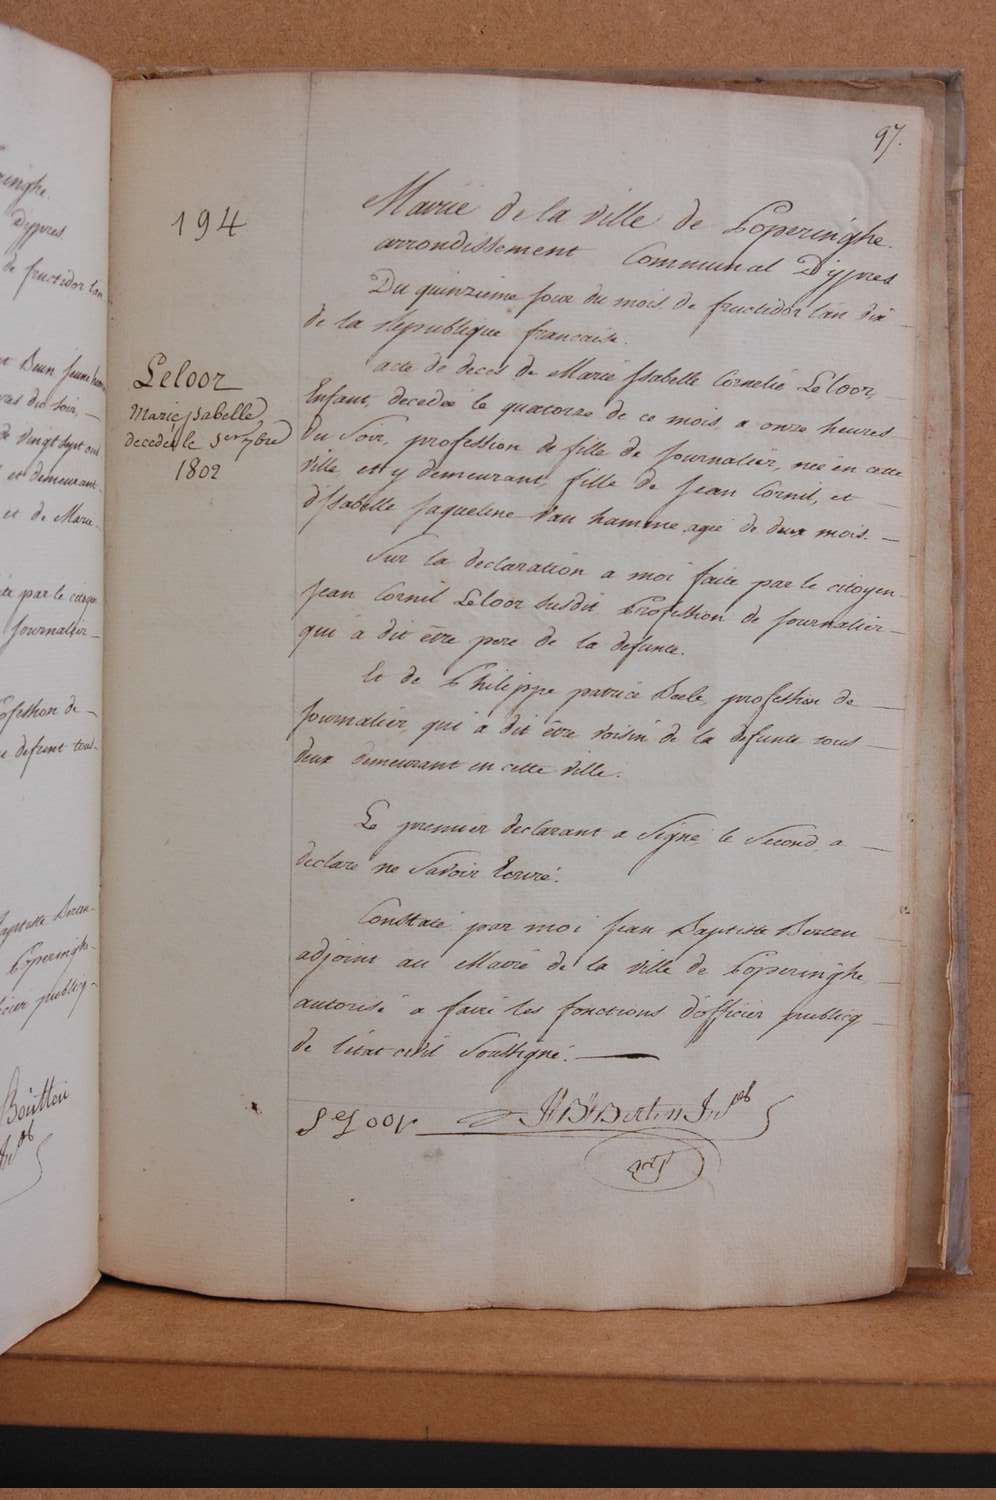 97.
194
Mairie de la ville de Poperinghe.
arrondissement Communal D'ypres
Du quinzieme jour du mois de fructidor l'an dix
de la republique francaise.
acte de deces de Marie Isabelle Cornelie Leloor,
Enfant, decedée le quatorze de ce mois, a onze heures
du Soir, profession de fille de journalier, née en cette
ville et y demeurant, fille de Jean Cornil, et
d'Isabelle Jaqueline Van hamme agée de deux mois.
Leloor
Marie Isabelle
decedée le 1er 7bre
1802
Sur la declaration a moi faite par le citoyen
Jean Cornil Leloor susdit Profession de journalier
qui a dit être pere de la defunte.
Et de Philippe patrice profession de
journalier, qui a dit être voisin de la defunte tous
deux demeurant en cette ville.
Le premier declarant a Signé le Second a
declaré ne Savoir Ecrire.
Constaté par moi Jean Baptiste Berten
adjoint au Mairie de la ville de Poperinghe
autorisé a faire les fonctions d'officier publicq
de l'état civil Soussigné.
Leloor Jn Bt Berten
ringhe.
D'ypres
de fructidor l'an
jeune
du soir,
de vingt sept ans
et demeurant
et de Marie
par le citoyen
journalier
profession de
defunt tous
Baptiste Berten
Poperinghe
publicq